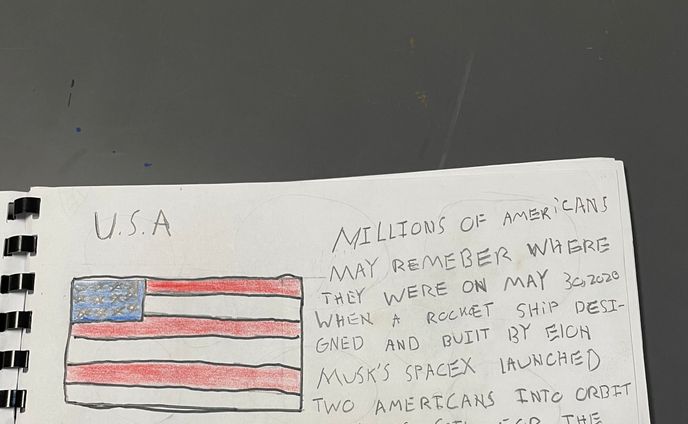 U.S.A
MILLIONS OF AMERICANS
MAY REMEBER WHERE
THEY WERE ON MAY 30,2020
WHEN A ROCKET SHIP DESI-
GNED AND BUILT BY ELON
MUSK'S SPACEX LAUNCHED
TWO AMERICANS INTO ORBIT
FOR THE